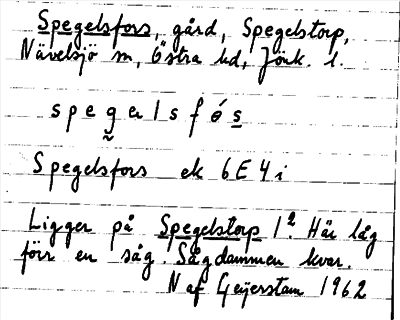 Spegelsfors, gård, Spegelstorp,
Nävelsjö sn, Östra hd, Jönk. l.
s p e g ə l s f ó s
Spegelsfors ek 6E4i
Ligger på Spegelstorp 1². Här låg
förr en såg. Sågdammen kvar.
N af Geijerstam 1962